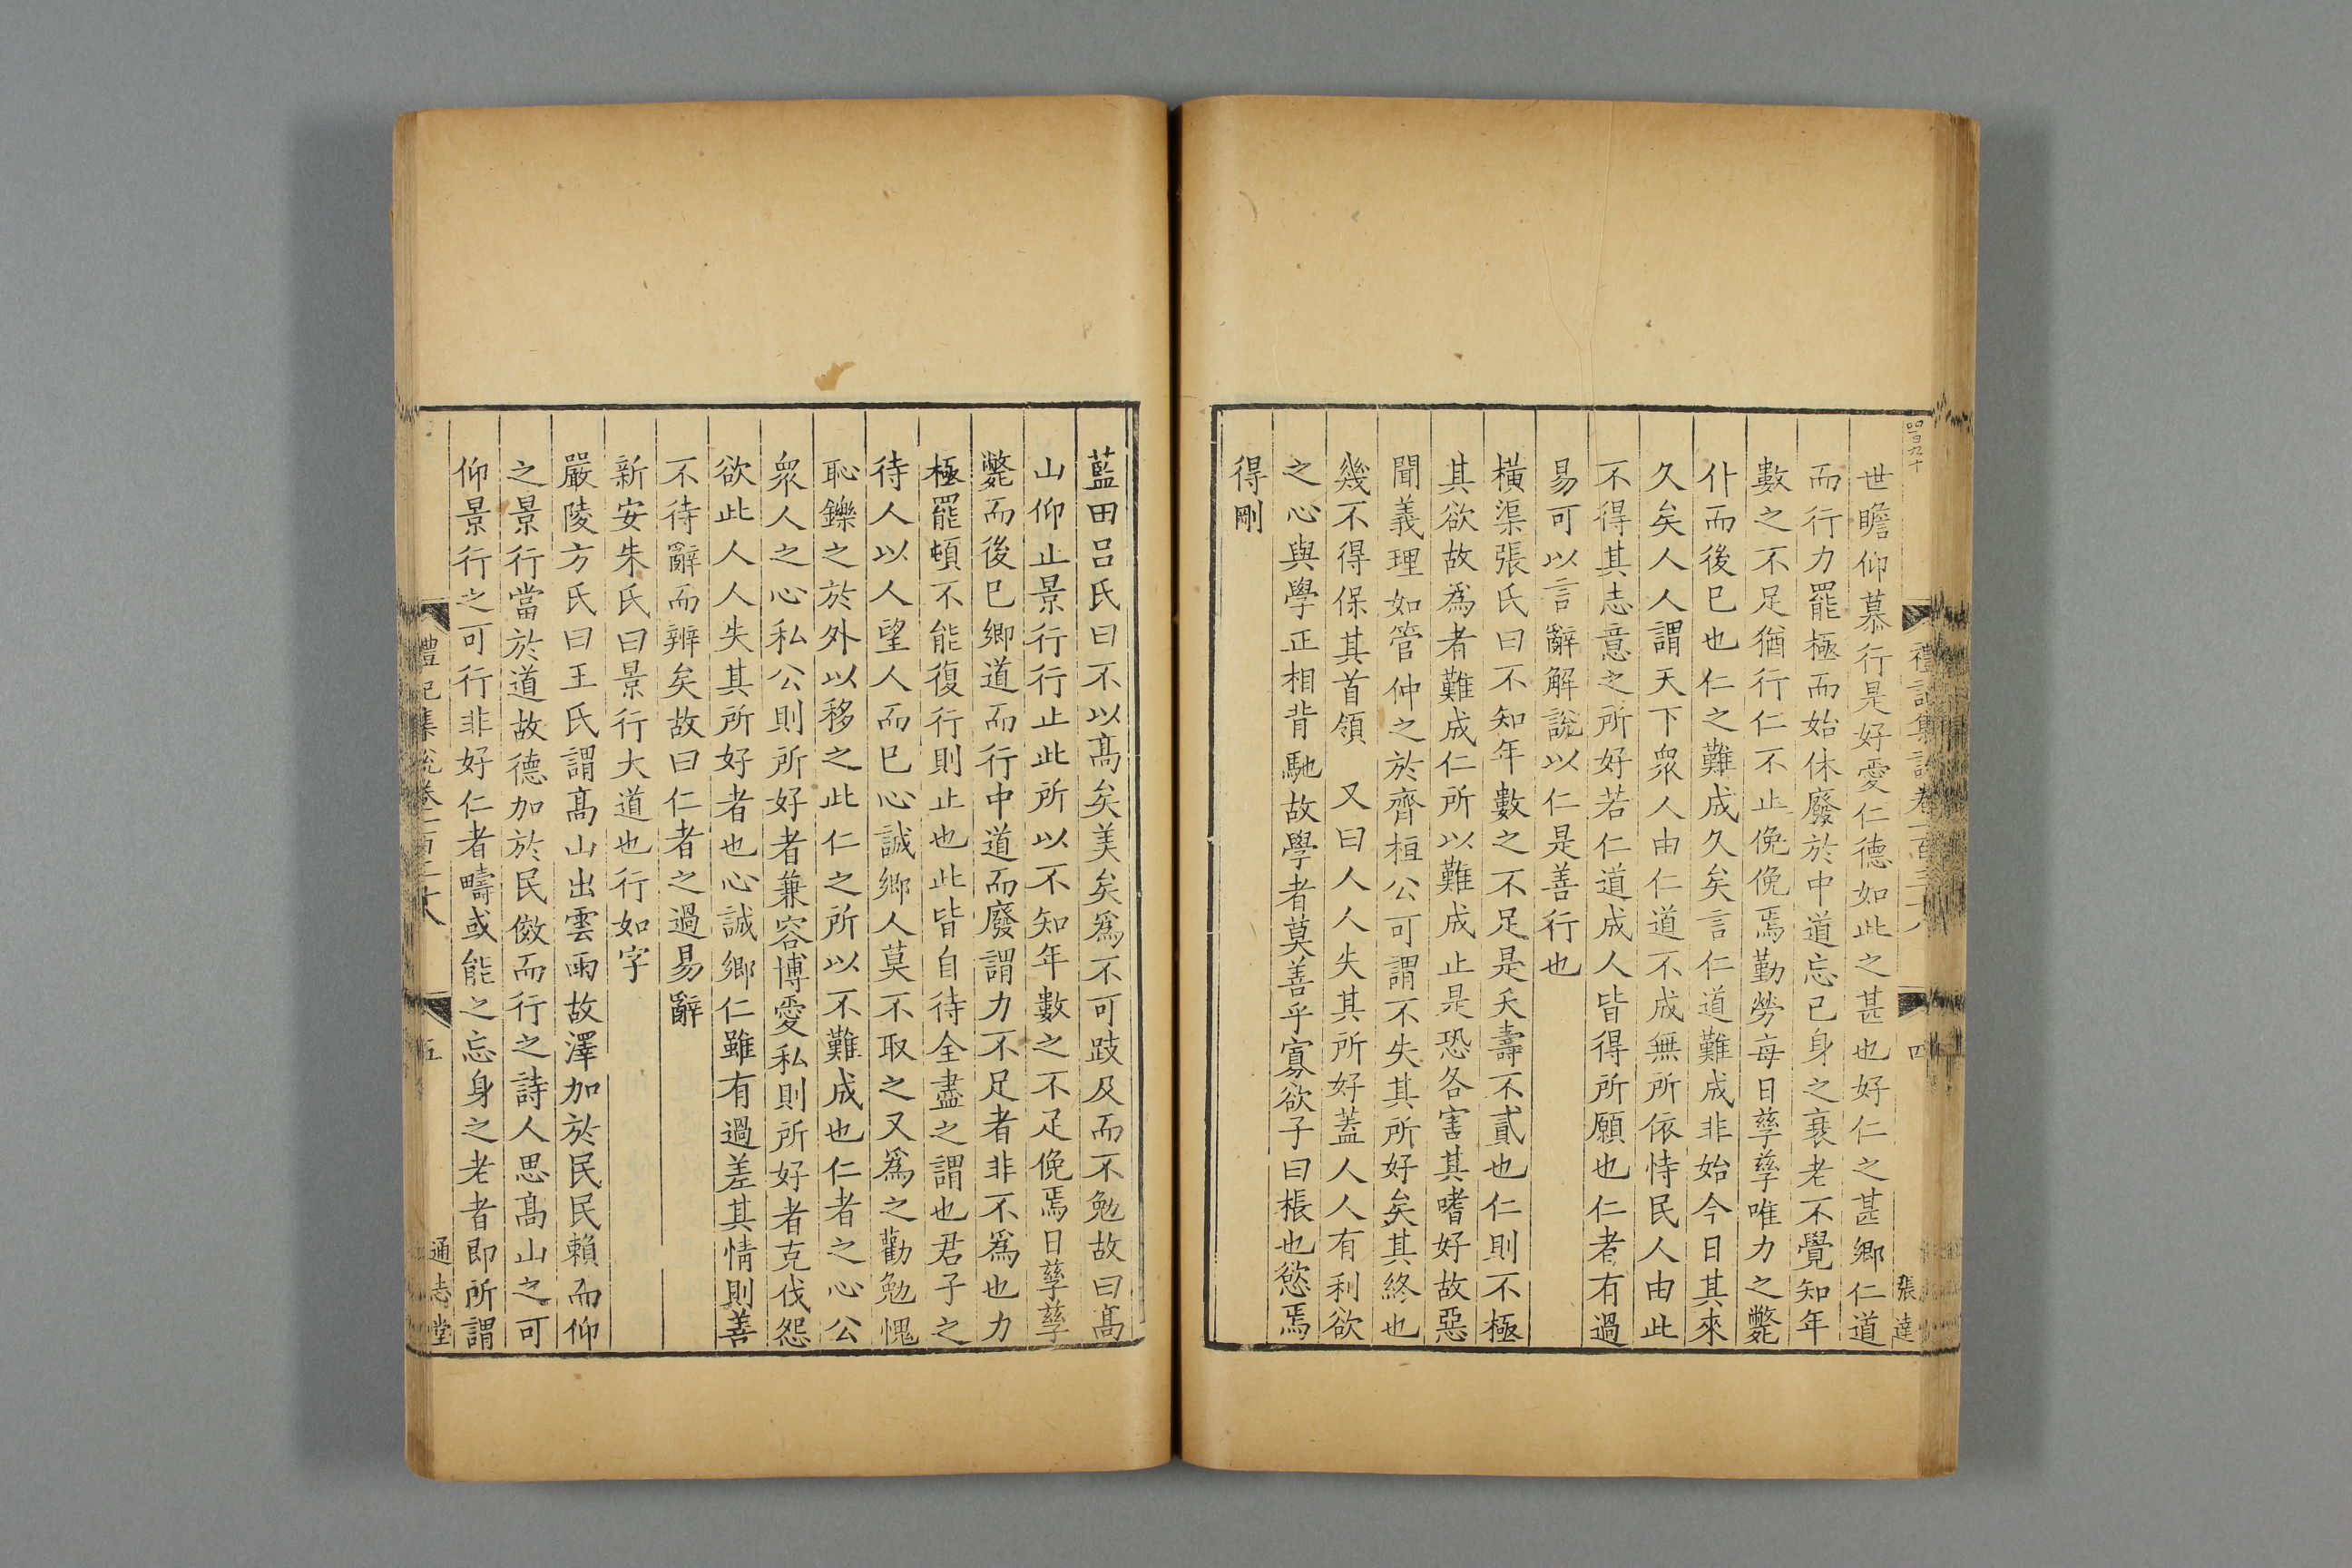 四百九十
禮記集說卷一百三十八
四
張達
世瞻仰慕行是好愛仁德如此之甚也好仁之甚鄉仁道
而行力罷極而始休廢於中道忘已身之衰老不覺知年
數之不足猶行仁不止俛俛焉勤勞每日孳孳唯力之斃
仆而後已也仁之難成久矣言仁道難成非始今日其來
久矣人人謂天下衆人由仁道不成無所依恃民人由此
不得其志意之所好若仁道成人皆得所願也仁者有過
易可以言辭解說以仁是善行也
橫渠張氏曰不知年數之不足是夭壽不貳也仁則不極
其欲故爲者難成仁所以難成止是恐各害其嗜好故惡
聞義理如管仲之於齊桓公可謂不失其所好矣其終也
幾不得保其首領　又曰人人失其所好蓋人人有利欲
之心與學正相背馳故學者莫善乎寡欲子曰棖也慾焉
得剛
藍田呂氏曰不以髙矣美矣爲不可跂及而不勉故曰髙
山仰止景行行止此所以不知年數之不足俛焉日孳孳
斃而後已鄉道而行中道而廢謂力不足者非不爲也力
極罷頓不能復行則止也此皆自待全盡之謂也君子之
待人以人望人而已心誠鄉人莫不取之又爲之勸勉愧
恥鑠之於外以移之此仁之所以不難成也仁者之心公
衆人之心私公則所好者兼容博愛私則所好者克伐怨
欲此人人失其所好者也心誠鄉仁雖有過差其情則善
不待辭而辨矣故曰仁者之過易辭
新安朱氏曰景行大道也行如字
嚴陵方氏曰王氏謂髙山出雲雨故澤加於民民賴而仰
之景行當於道故德加於民傚而行之詩人思髙山之可
仰景行之可行非好仁者疇或能之忘身之老者即所謂
禮記集說卷一百三十八
五
通志堂